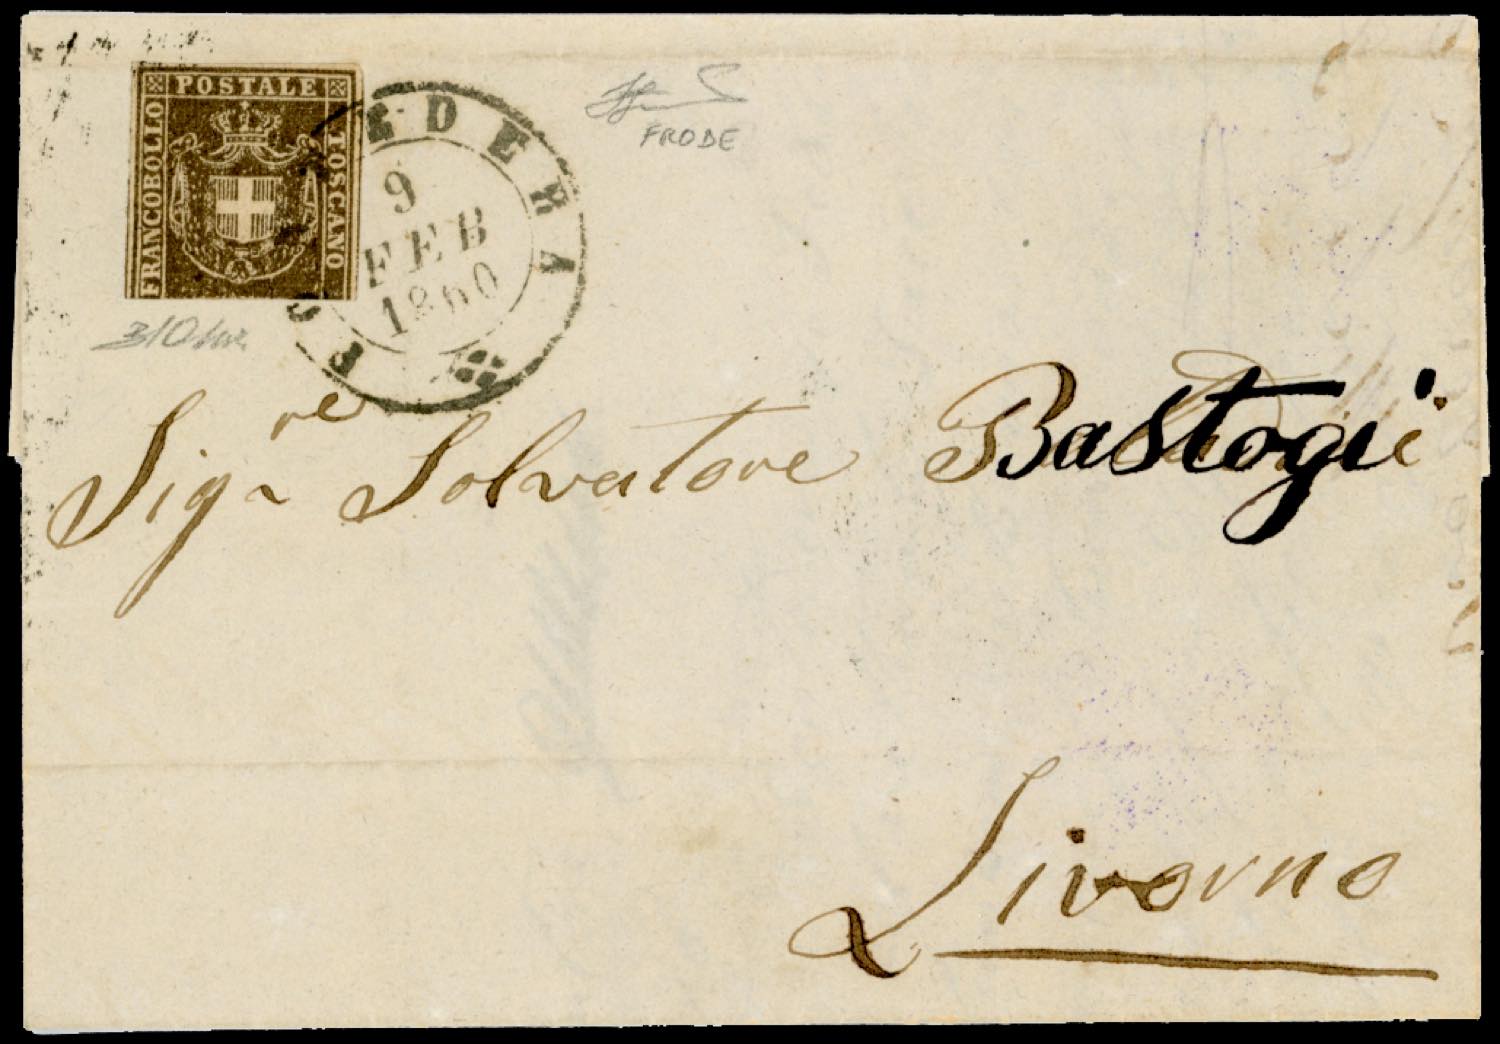 POSTALE
FRANCOBOLLO
TOSCANO
PONTEDERA
9
FEB
1860
FRODE
Sig.re Salvatore Bastogi
Livorno